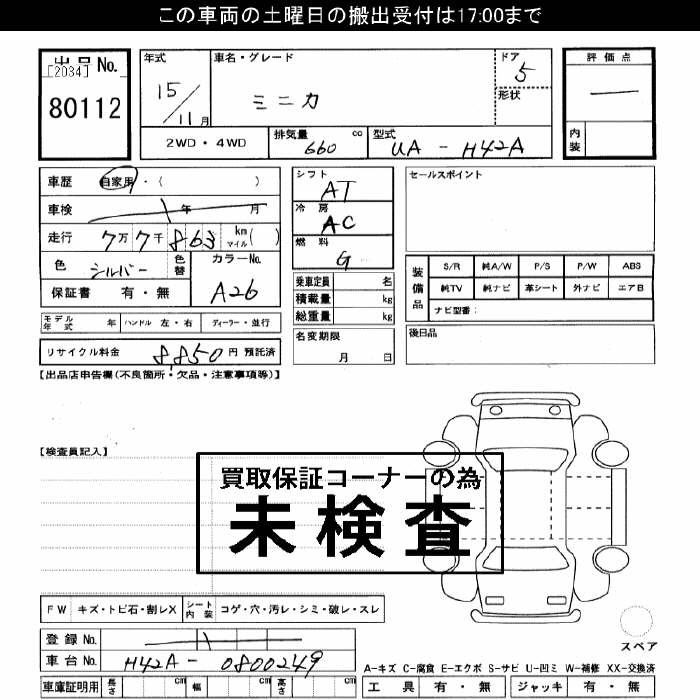 この車両の土曜日の搬出受付は17:00まで
出品 No.
[2034]
80112
年式
15/11月
車名・グレード
ミニカ
ドア
5
形状
評価点
―
内装
2WD・4WD
排気量 cc
660
型式
UA - H42A
車歴 自家用・( )
車検 年 月
走行 7万7千863 km マイル ( )
色 シルバー
色替
カラーNo.
A26
保証書 有・無
シフト
AT
冷房
AC
燃料
G
乗車定員 名
積載量 kg
総重量 kg
名変期限
月 日
セールスポイント
装備品
S/R 純A/W P/S P/W ABS
純TV 純ナビ 革シート 外ナビ エアB
ナビ型番:
後日品
モデル年式 年 ハンドル 左・右 ディーラー・並行
リサイクル料金 8,850 円 預託済
【出品店申告欄(不良箇所・欠品・注意事項等)】
【検査員記入】
買取保証コーナーの為
未検査
FW キズ・トビ石・割レX シート内装 コゲ・穴・汚レ・シミ・破レ・スレ
登録 No.
車台 No. H42A - 0800249
車庫証明用 長さ cm 幅 cm 高さ cm
スペア
A-キズ C-腐食 E-エクボ S-サビ U-凹ミ W-補修 XX-交換済
工具 有・無 ジャッキ 有・無